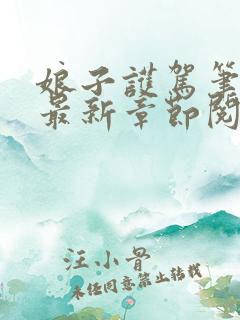 娘子護駕筆
最新章節閱
汪小骨
未任同意禁止转载